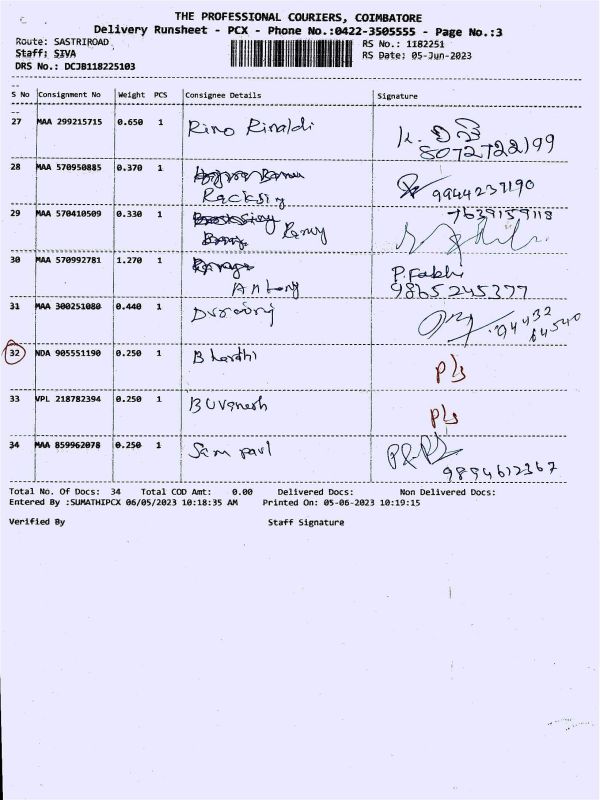 THE PROFESSIONAL COURIERS, COIMBATORE
Delivery Runsheet - PCX - Phone No.:0422-3505555 - Page No.:3
Route: SASTRIROAD RS No.: 1182251
Staff: SIVA RS Date: 05-Jun-2023
DRS No.: DCJB118225103
S No Consignment No Weight PCS Consignee Details Signature
27 MAA 299215715 0.650 1 Rino Rinaldi
8072722199
28 MAA 570950885 0.370 1
Racksiy 9944239190
29 MAA 570410509 0.330 1 7639159118
30 MAA 570992781 1.270 1 P.Fabhi
Antony 9865245377
31 MAA 300251080 0.440 1
32 NDA 905551190 0.250 1 Bharthi P/s
33 VPL 218782394 0.250 1 BUvanesh P/s
34 MAA 859962078 0.250 1 Sam paul
9894612367
Total No. Of Docs: 34 Total COD Amt: 0.00 Delivered Docs: Non Delivered Docs:
Entered By :SUMATHIPCX 06/05/2023 10:18:35 AM Printed On: 05-06-2023 10:19:15
Verified By Staff Signature